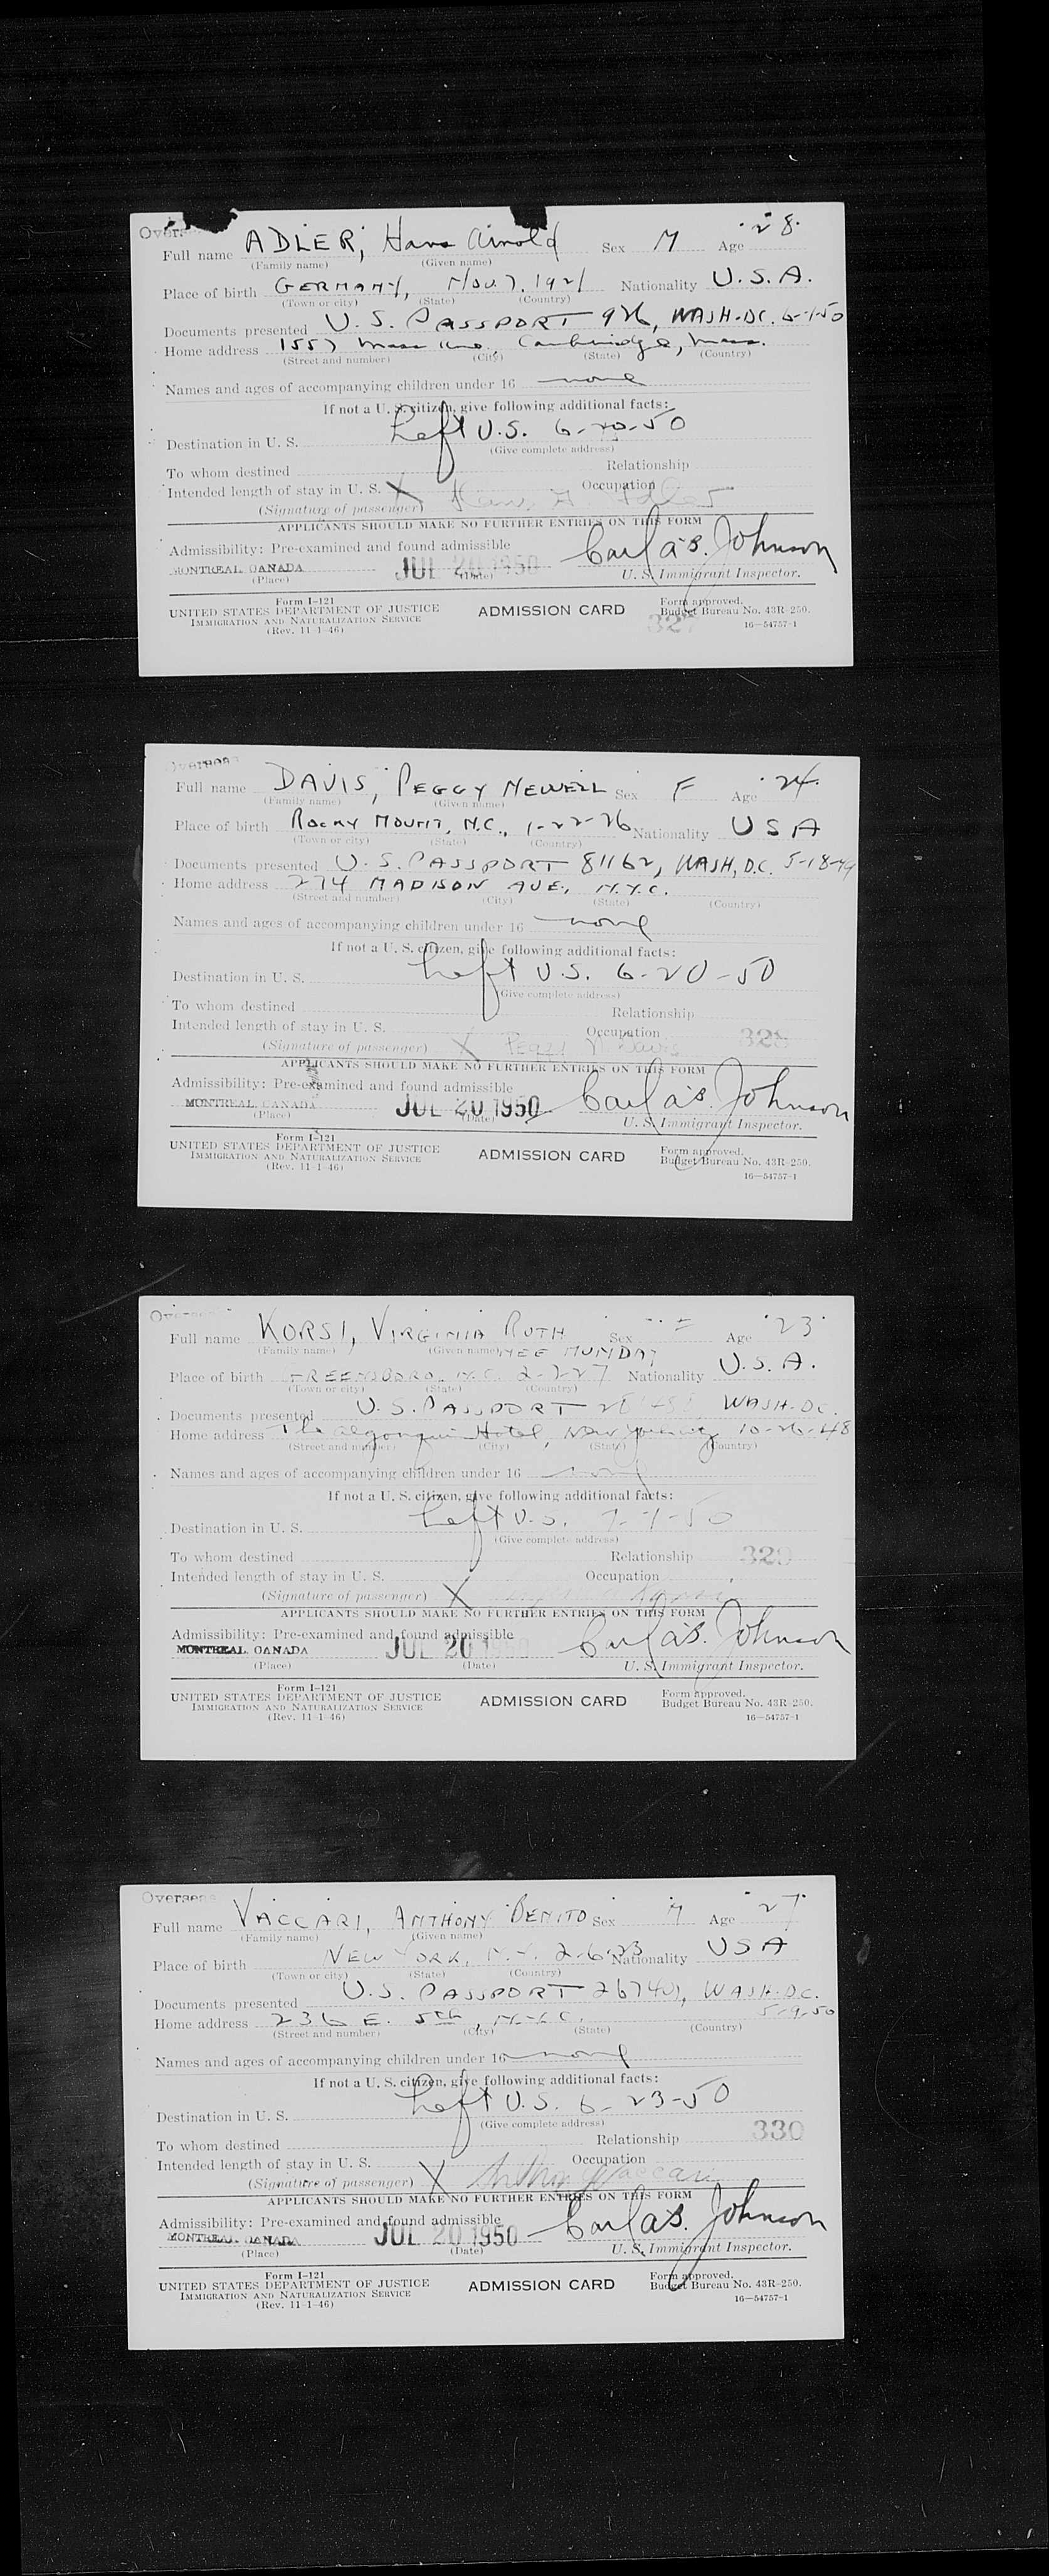 Overs
Full name ADLER, Hans Arnold Sex M Age 28
(Family name) (Given name)
Place of birth GERMANY, NOV. 7, 1921 Nationality U.S.A.
(Town or city) (State) (Country)
Documents presented U.S. PASSPORT 926, WASH. DC.
Home address 1557 Mass Ave., Cambridge, Mass.
(Street and number) (City) (State) (Country)
Names and ages of accompanying children under 16 none
If not a U. S. citizen, give following additional facts:
Left U.S. 6-20-50
Destination in U. S.
(Give complete address)
To whom destined Relationship
Intended length of stay in U. S. Occupation
(Signature of passenger) X Hans A Adler
APPLICANTS SHOULD MAKE NO FURTHER ENTRIES ON THIS FORM
Admissibility: Pre-examined and found admissible
MONTREAL CANADA JUL 20 1950 Carl A.B. Johnson
(Place) (Date) U. S. Immigrant Inspector.
Form I-121
UNITED STATES DEPARTMENT OF JUSTICE
IMMIGRATION AND NATURALIZATION SERVICE
(Rev. 11-1-46)
ADMISSION CARD
Form approved.
Budget Bureau No. 43R-250.
327
16—54757-1
Overseas
Full name DAVIS, PEGGY NEWELL Sex F Age 24
(Family name) (Given name)
Place of birth ROCKY MOUNT, N.C., 1-22-26 Nationality USA
(Town or city) (State) (Country)
Documents presented U.S. PASSPORT 81162, WASH, D.C. 5-18-49
Home address 274 MADISON AVE, N.Y.C.
(Street and number) (City) (State) (Country)
Names and ages of accompanying children under 16 none
If not a U. S. citizen, give following additional facts:
Left U.S. 6-20-50
Destination in U. S.
(Give complete address)
To whom destined Relationship
Intended length of stay in U. S. Occupation 328
(Signature of passenger) X Peggy N Davis
APPLICANTS SHOULD MAKE NO FURTHER ENTRIES ON THIS FORM
Admissibility: Pre-examined and found admissible
MONTREAL CANADA JUL 20 1950 Carl A.B. Johnson
(Place) (Date) U. S. Immigrant Inspector.
Form I-121
UNITED STATES DEPARTMENT OF JUSTICE
IMMIGRATION AND NATURALIZATION SERVICE
(Rev. 11-1-46)
ADMISSION CARD
Form approved.
Budget Bureau No. 43R-250.
16—54757-1
Full name KORSI, VIRGINIA RUTH Sex Age 23
(Family name) (Given name) NEE MUNDAY
Place of birth GREENSBORO, N.C. 2-7-27 Nationality U.S.A.
(Town or city) (State) (Country)
Documents presented U.S. PASSPORT WASH. DC.
Home address The Algonquin Hotel, New York City 10-26-48
(Street and number) (City) (State) (Country)
Names and ages of accompanying children under 16 none
If not a U. S. citizen, give following additional facts:
Left U.S. 7-1-50
Destination in U. S.
(Give complete address)
To whom destined Relationship 329
Intended length of stay in U. S. Occupation
(Signature of passenger) X
APPLICANTS SHOULD MAKE NO FURTHER ENTRIES ON THIS FORM
Admissibility: Pre-examined and found admissible
MONTREAL CANADA JUL 20 1950 Carl A.B. Johnson
(Place) (Date) U. S. Immigrant Inspector.
Form I-121
UNITED STATES DEPARTMENT OF JUSTICE
IMMIGRATION AND NATURALIZATION SERVICE
(Rev. 11-1-46)
ADMISSION CARD
Form approved.
Budget Bureau No. 43R-250.
16—54757-1
Overseas
Full name VACCARI, ANTHONY BENITO Sex M Age 27
(Family name) (Given name)
Place of birth NEW YORK, N.Y. 2-6-23 Nationality USA
(Town or city) (State) (Country)
Documents presented U.S. PASSPORT WASH. DC.
5-9-50
Home address 236 E. 5th, N.Y.C.
(Street and number) (City) (State) (Country)
Names and ages of accompanying children under 16 none
If not a U. S. citizen, give following additional facts:
Left U.S. 6-23-50
Destination in U. S.
(Give complete address)
To whom destined Relationship 330
Intended length of stay in U. S. Occupation
(Signature of passenger) X Anthony Vaccari
APPLICANTS SHOULD MAKE NO FURTHER ENTRIES ON THIS FORM
Admissibility: Pre-examined and found admissible
MONTREAL CANADA JUL 20 1950 Carl A.B. Johnson
(Place) (Date) U. S. Immigrant Inspector.
Form I-121
UNITED STATES DEPARTMENT OF JUSTICE
IMMIGRATION AND NATURALIZATION SERVICE
(Rev. 11-1-46)
ADMISSION CARD
Form approved.
Budget Bureau No. 43R-250.
16—54757-1